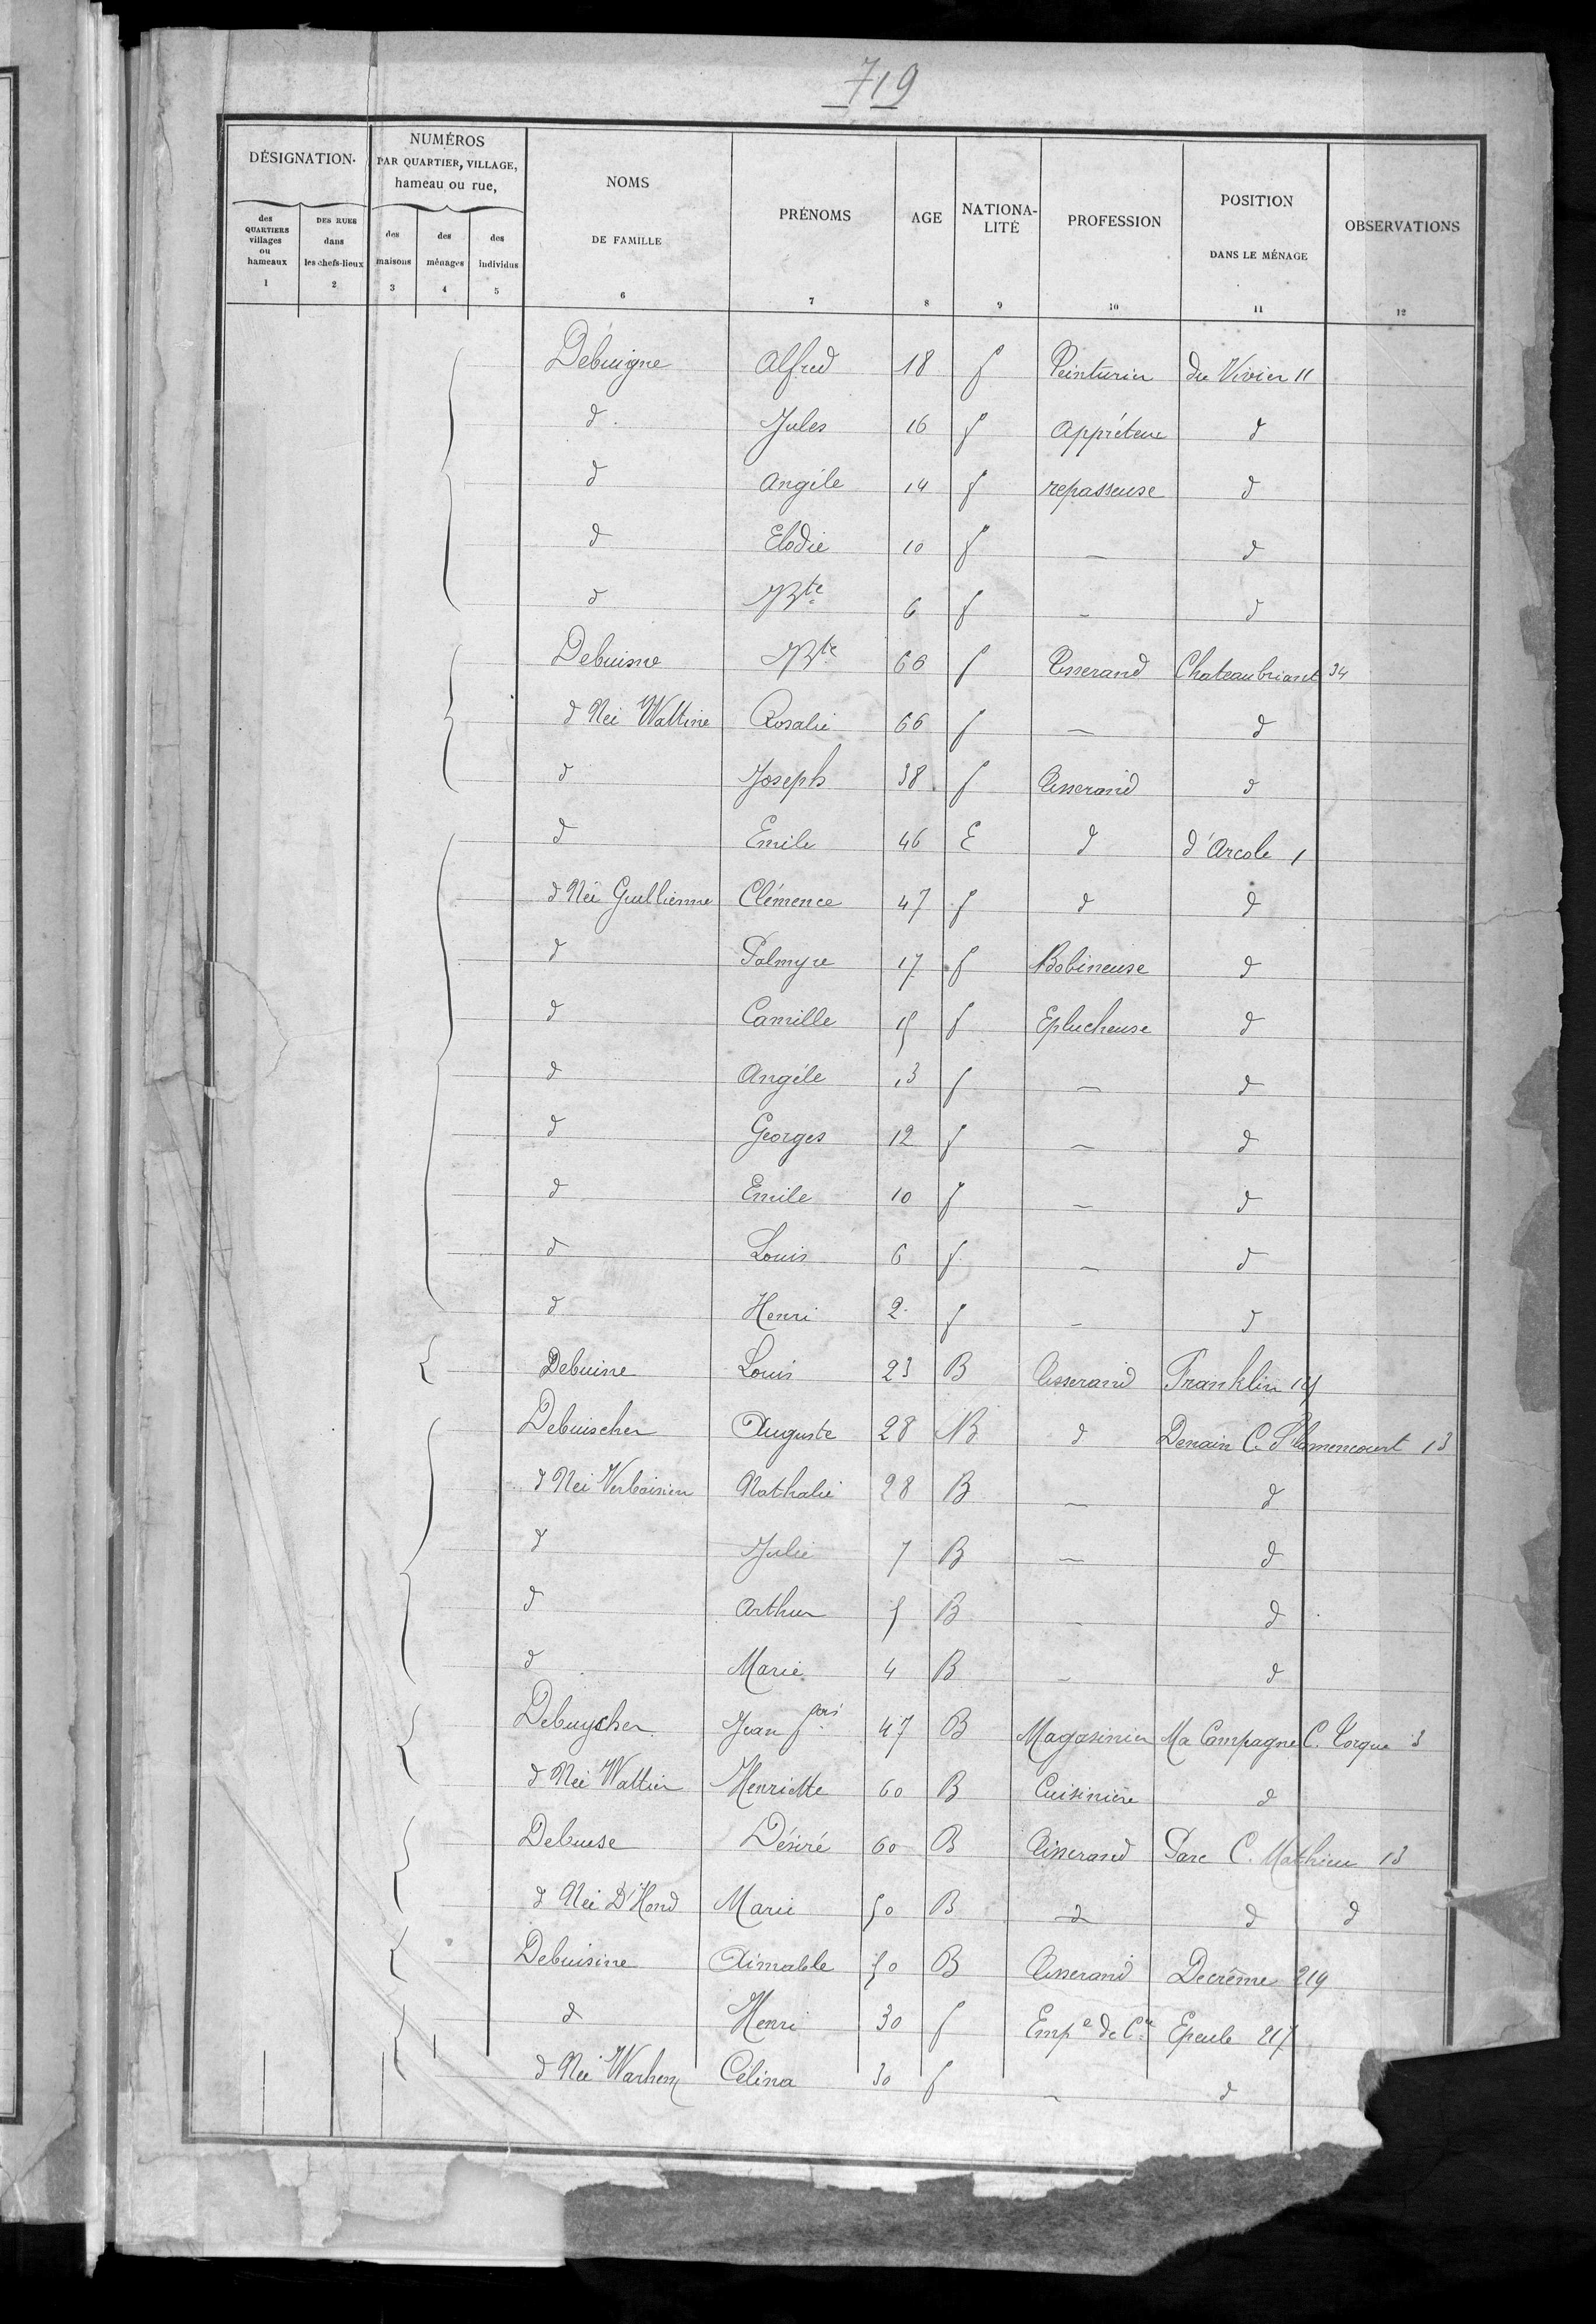 719
DÉSIGNATION.
NUMÉROS
PAR QUARTIER, VILLAGE,
hameau ou rue,
NOMS
DE FAMILLE
PRÉNOMS
AGE
NATIONA-
LITÉ
PROFESSION
POSITION
DANS LE MÉNAGE
OBSERVATIONS
des
QUARTIERS
villages
ou
hameaux
DES RUES
dans
les chefs-lieux
des
maisons
des
ménages
des
individus
1 2 3 4 5 6 7 8 9 10 11 12
Debuigne Alfred 18 f Teinturier du Vivier 11
d Jules 16 f Apprêteur d
d Angèle 14 f repasseuse d
d Elodie 10 f — d
d JBte 6 f — d
Debuisne JBte 66 f Tisserand Chateaubriant 34
d Née Wattine Rosalie 66 f — d
d Joseph 38 f Tisserand d
d Emile 46 E d d'Arcole 1
d Née Guillienne Clémence 47 f d d
d Palmyre 17 f Bobineuse d
d Camille 15 f Eplucheuse d
d Angèle 13 f — d
d Georges 12 f — d
d Emile 10 f — d
d Louis 6 f — d
d Henri 2 f — d
Debuine Louis 23 B Tisserand Franklin
Debuischer Auguste 28 B d Denain C. Flamencourt 13
d Née Nathalie 28 B — d
d Julie 7 B — d
d Arthur 5 B — d
d Marie 4 B — d
Debuyscher Jean fcois 47 B Magasinier Ma Campagne C. Torque 3
d Née Wattier Henriette 60 B Cuisinière d
Debuese Désiré 60 B Tisserand Parc C. Mathieu 13
d Née D'Hond Marie 50 B d d d
Debuisine Aimable 50 B Tisserand Decrême 219
d Henri 30 f Empé de Cce Epeule 217
d Née Warhem Célina 30 f — d